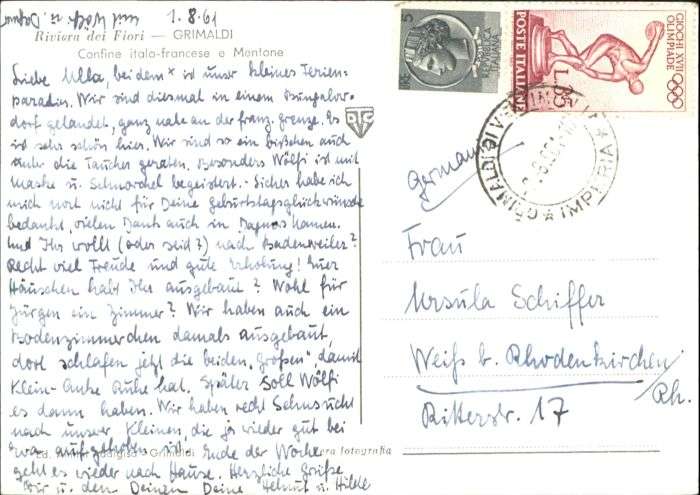 und Wölfi u. Dagmar
1.8.61
Riviera dei Fiori — GRIMALDI
Confine italo-francese e Mentone
Liebe Ulla, bei dem x ist unser kleines Ferien-
paradies. Wir sind diesmal in einem Bungalow-
dorf gelandet, ganz nahe an der franz. Grenze. Es
ist sehr schön hier. Wir sind so ein bißchen auch
unter die Taucher geraten. Besonders Wölfi ist mit
Maske u. Schnorchel begeistert. - Sicher habe ich
mich noch nicht für Deine Geburtstagsglückwünsche
bedankt, vielen Dank auch in Dagmars Namen.
Und Ihr wollt (oder seid?) nach Badenweiler?
Recht viel Freude und gute Erholung! Euer
Häuschen habt Ihr ausgebaut? Wohl für
Jürgen ein Zimmer? Wir haben auch ein
Bodenzimmerchen damals ausgebaut,
dort schlafen jetzt die beiden „Großen" damit
Klein-Anke Ruhe hat. Später soll Wölfi
es dann haben. Wir haben recht Sehnsucht
nach unserer Kleinen, die ja wieder gut bei
aufgehoben ist. Ende der Woche
geht es wieder nach Hause. Herzliche Grüße
Dir u. den Deinen Deine Helmut u. Hilde
Grimaldi
vera fotografia
5
REPUBBLICA ITALIANA
GIOCHI XVII OLIMPIADE
POSTE ITALIANE
L.35
GRIMALDI DI VENTIMIGLIA
IMPERIA
Germania
Frau
Ursula Schiffer
Weiß b. Rhodenkirchen/
Rh.
Ritterstr. 17